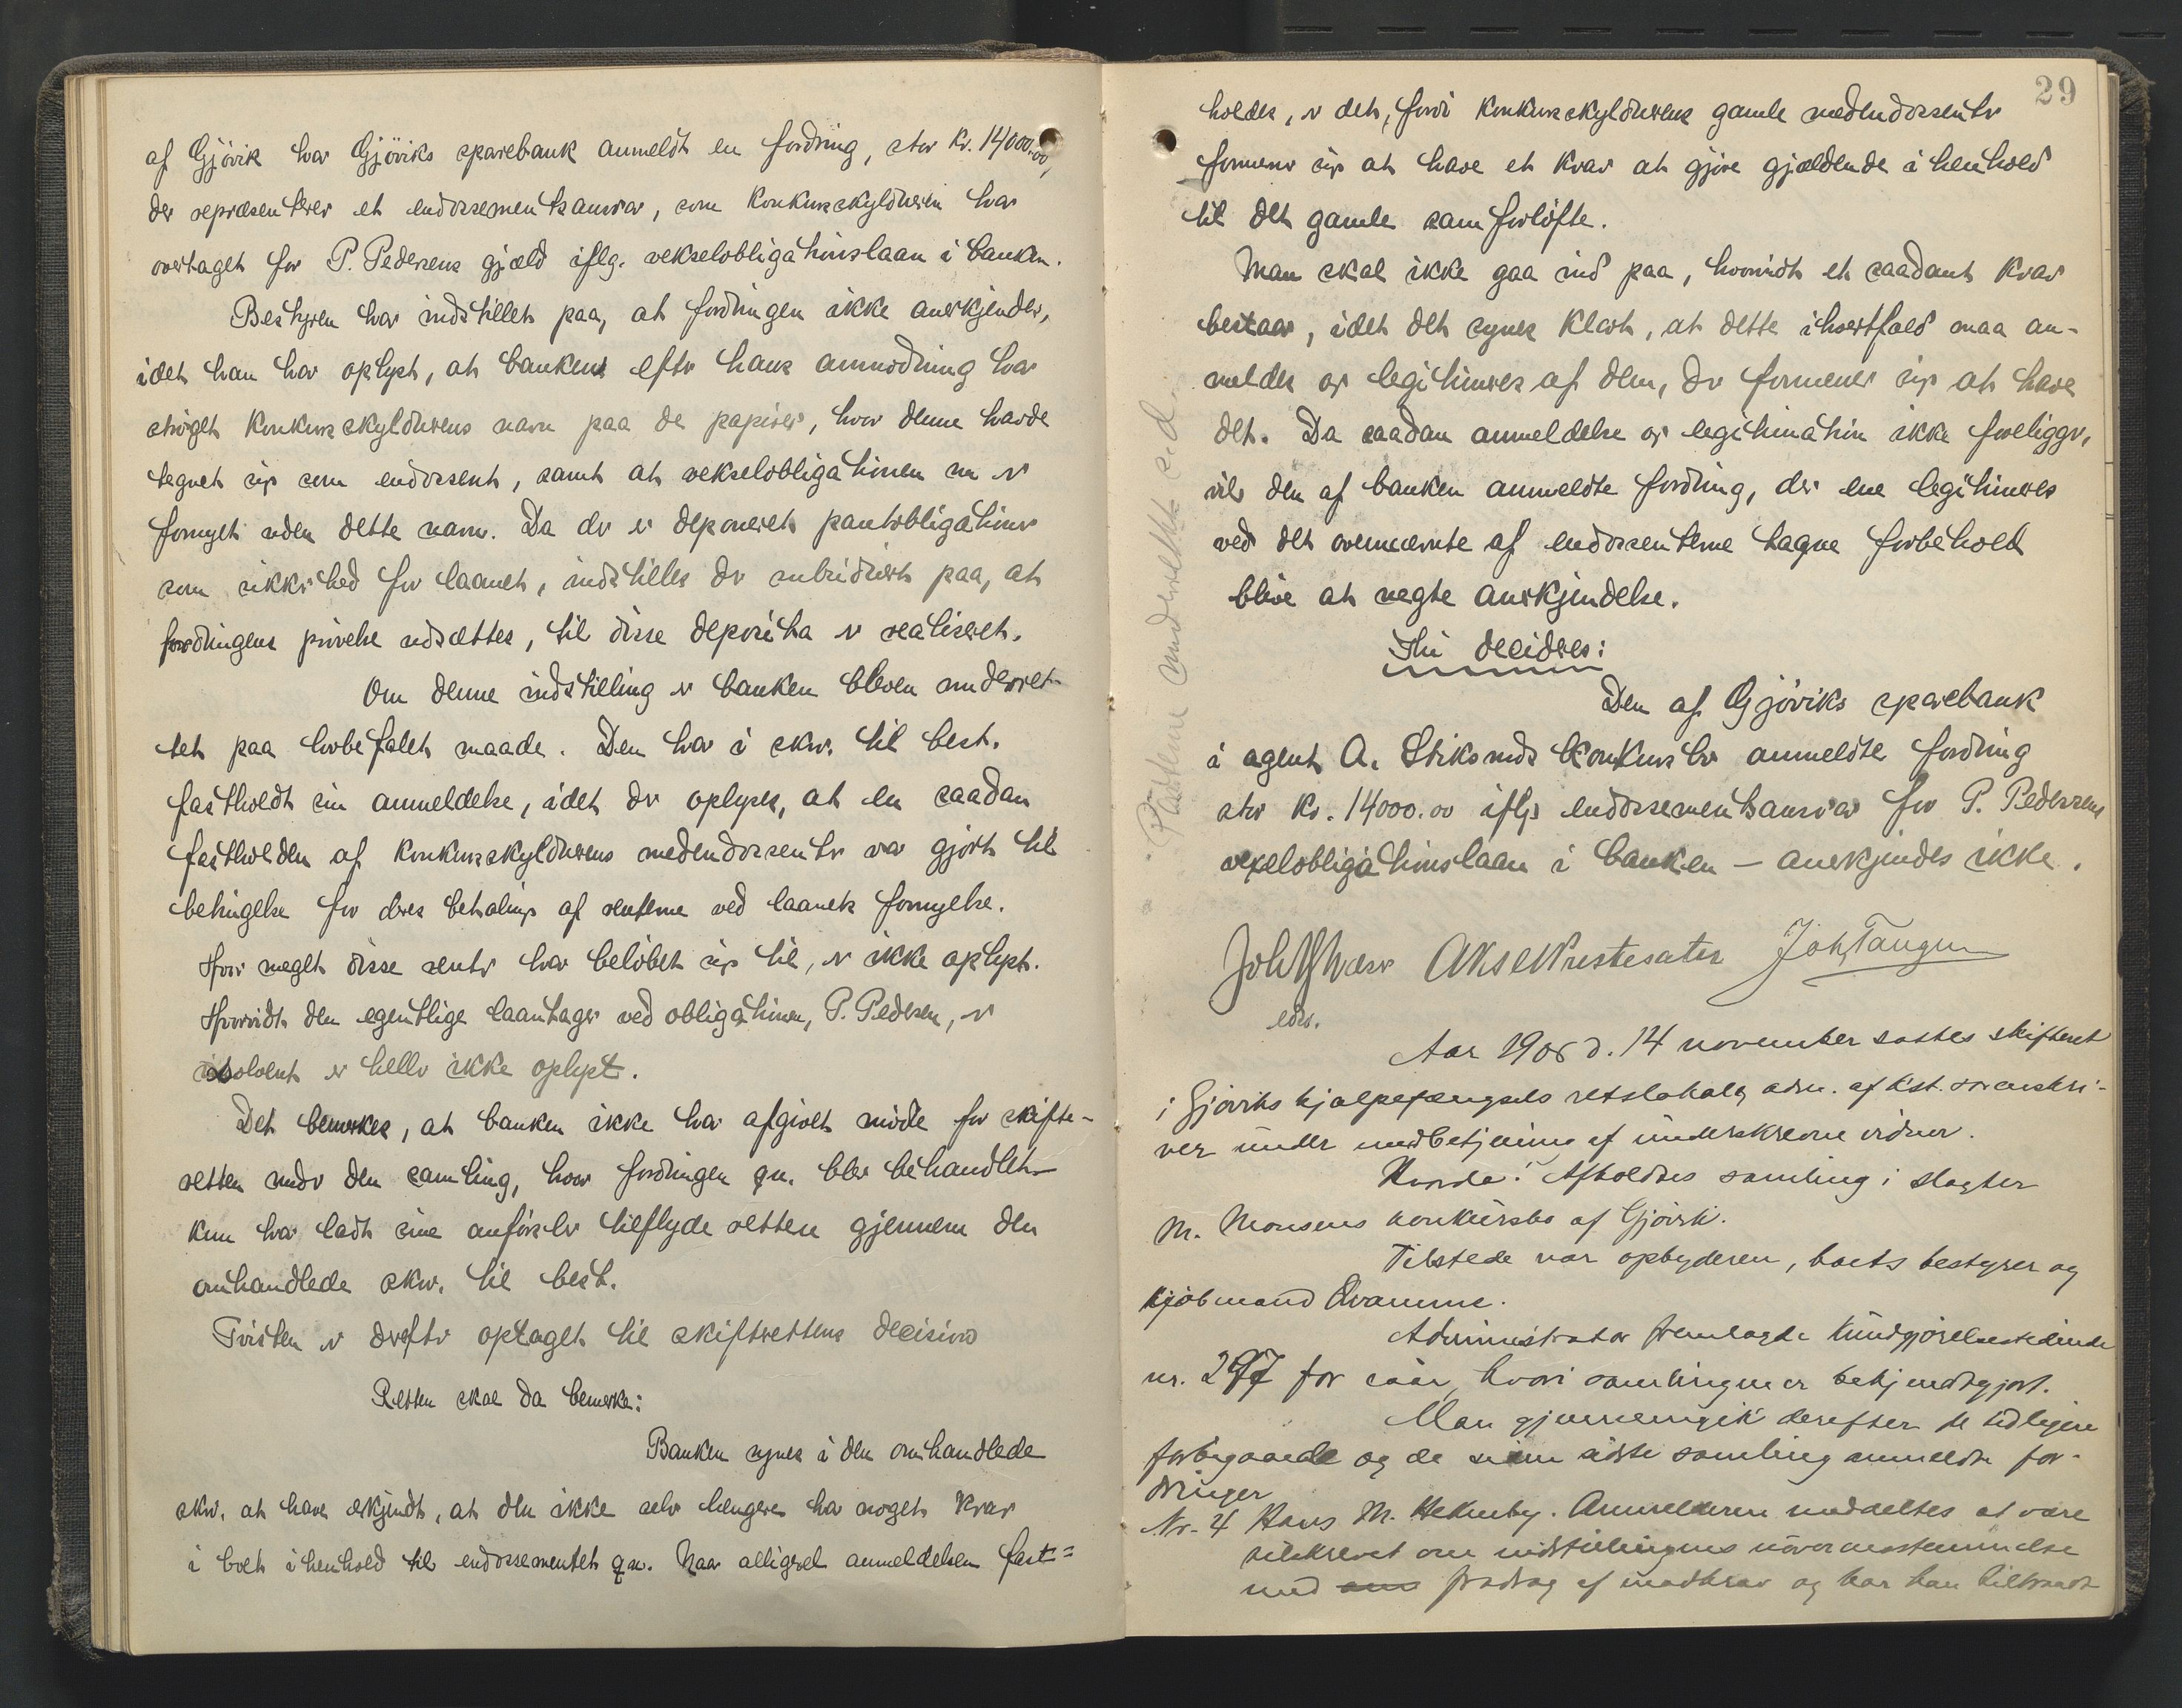 af Gjövik har Gjöviks sparebank anmeldt en fordring, stor kr. 14000.00,
der repræsenterer et endossementsansvar, som konkursskyldneren har
overtaget for P. Pedersens gjæld iflg. vekselobligationslaan i banken.
Bestyren har indstillet paa, at fordringen ikke anerkjendes,
idet han har oplyst, at banken efter hans anmodning har
strøget konkursskyldnerens navn paa de papirer, hvor denne havde
tegnet sig som endossent, samt at vekselobligationen nu er
fornyet uden dette navn. Da der er deponeret pantobligationer
som sikkerhed for laanet, indstilles der subsidiært paa, at
fordringens prøvelse udsættes, til disse deposita er realiseret.
Om denne indstilling er banken bleven underret-
tet paa lovbefalet maade. Den har i skr. til best.
fastholdt sin anmeldelse, idet der oplyses, at en saadan
fastholden af konkursskyldnerens medendossenter var gjort til
betingelse for deres betaling af renterne ved laanets fornyelse.
Hvor meget disse renter har beløbet sig til, er ikke oplyst.
Hvorvidt den egentlige laantager ved obligationen, P. Pedersen, er
insolvent er heller ikke oplyst.
Det bemerkes, at banken ikke har afgivet møde for skifte-
retten under den samling, hvor fordringen qu. blev behandlet
kun har ladt sine anførsler tilflyde retten gjennem den
omhandlede skr. til best.
Tvisten er derefter optaget til skifterettens decision
Retten skal da bemerke:
Banken synes i den omhandlede
skr. at have erkjendt, at den ikke selv længere har noget krav
i boet i henhold til endossementet qu. Naar alligevel anmeldelsen fast=
29
holdes, er det, fordi konkursskyldnerens gamle medendossenter
formener sig at have et krav at gjøre gjældende i henhold
til det gamle samforløfte.
Man skal ikke gaa ind paa, hvorvidt et saadant krav
bestaar, idet det synes klart, at dette ihvertfald maa an-
meldes og legitimeres af dem, der formener sig at have
det. Da saadan anmeldelse og legitimation ikke foreligger,
vil den af banken anmeldte fordring, der ene legitimeres
ved det ovennævnte af endossenterne tagne forbehold
blive at negte anerkjendelse.
Thi decideres:
Den af Gjöviks sparebank
i agent A. Stiksruds konkursbo anmeldte fordring
stor kr. 14000.00 iflg endossementsansvar for P. Pedersens
vexelobligationslaan i banken – anerkjendes ikke.
Parterne underrettet s.d.
Aksel Kristesater Joh. Tangen
edsv.
Aar 1906 d. 14 november sattes skifteret
i Gjøviks hjælpefængsels retslokale, adm. af kst. sorenskri-
ver under medbetjening af underskrevne vidner.
Hvorda: Afholdtes samling i slagter
M. Monsens konkursbo af Gjøvik.
Tilstede var opbyderen, boets bestyrer og
kjøbmand Kvamme.
Administrator fremlagde kundgjørelsestidende
nr. 297 for iaar, hvori samlingen er bekjendtgjort.
Man gjennemgik derefter de tidligere
forbigaaede og de siden sidste samling anmeldte for-
dringer
Nr. 4 Hans M. Hekneby. Anmelderen meddeltes at være
tilskrevet om indstillingens uoverensstemmelse
med fradrag af modkrav og har han